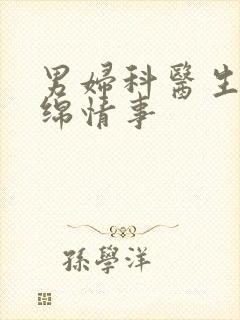 男婦科醫生
綿情事
孫學洋